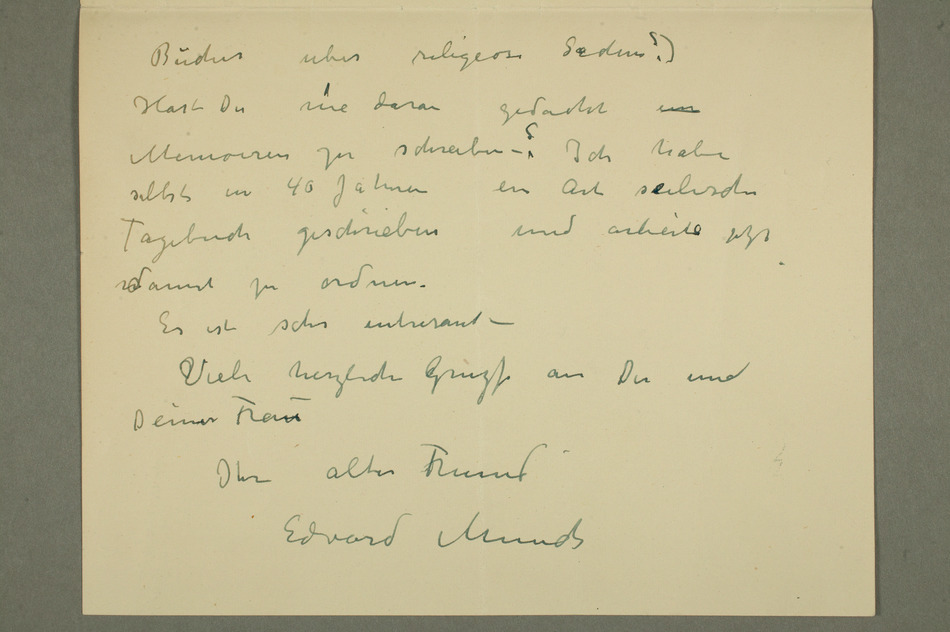 Bücher über religeose Saedem?)
Hast Du nie daran gedacht
Memoiren zu schreiben–? Ich habe
selbst in 40 Jahren ein Art seelische
Tagebuch geschrieben und arbeite jetzt
damit zu ordnen.
Es ist sehr interesant–
Viele herzliche Grüsse an Du und
Deiner Frau
Ihr alter Freund
Edvard Munch